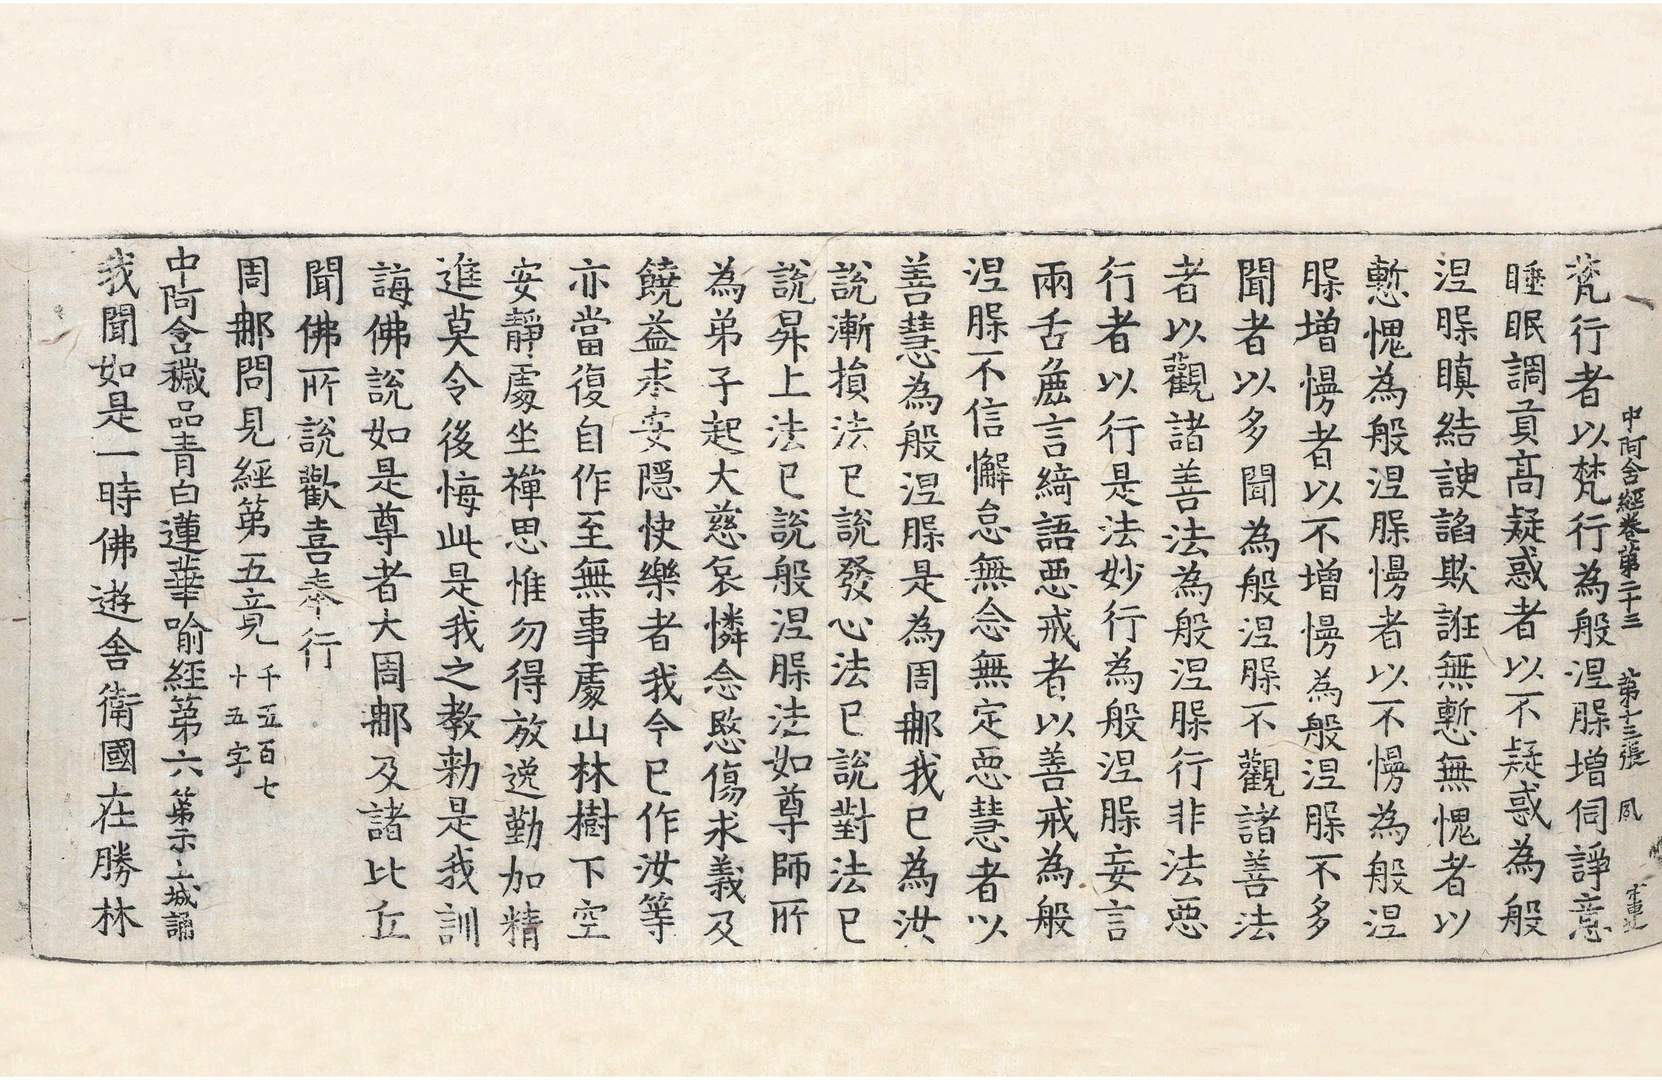 中阿含經卷第二十三 第十三張 夙
梵行者以梵行為般涅槃增伺諍意
睡眠調貢高疑惑者以不疑惑為般
涅槃瞋結諛諂欺誑無慙無愧者以
慙愧為般涅槃慢者以不慢為般涅
槃增慢者以不增慢為般涅槃不多
聞者以多聞為般涅槃不觀諸善法
者以觀諸善法為般涅槃行非法惡
行者以行是法妙行為般涅槃妄言
兩舌麁言綺語惡戒者以善戒為般
涅槃不信懈怠無念無定惡慧者以
善慧為般涅槃是為周那我已為汝
說漸損法已說發心法已說對法已
說昇上法已說般涅槃法如尊師所
為弟子起大慈哀憐念愍傷求義及
饒益求安隱快樂者我今已作汝等
亦當復自作至無事處山林樹下空
安靜處坐禪思惟勿得放逸勤加精
進莫令後悔此是我之教勅是我訓
誨佛說如是尊者大周那及諸比丘
聞佛所說歡喜奉行
周那問見經第五竟 千五百七十五字
中阿含穢品青白蓮華喻經第六 第示土城誦
我聞如是一時佛遊舍衛國在勝林